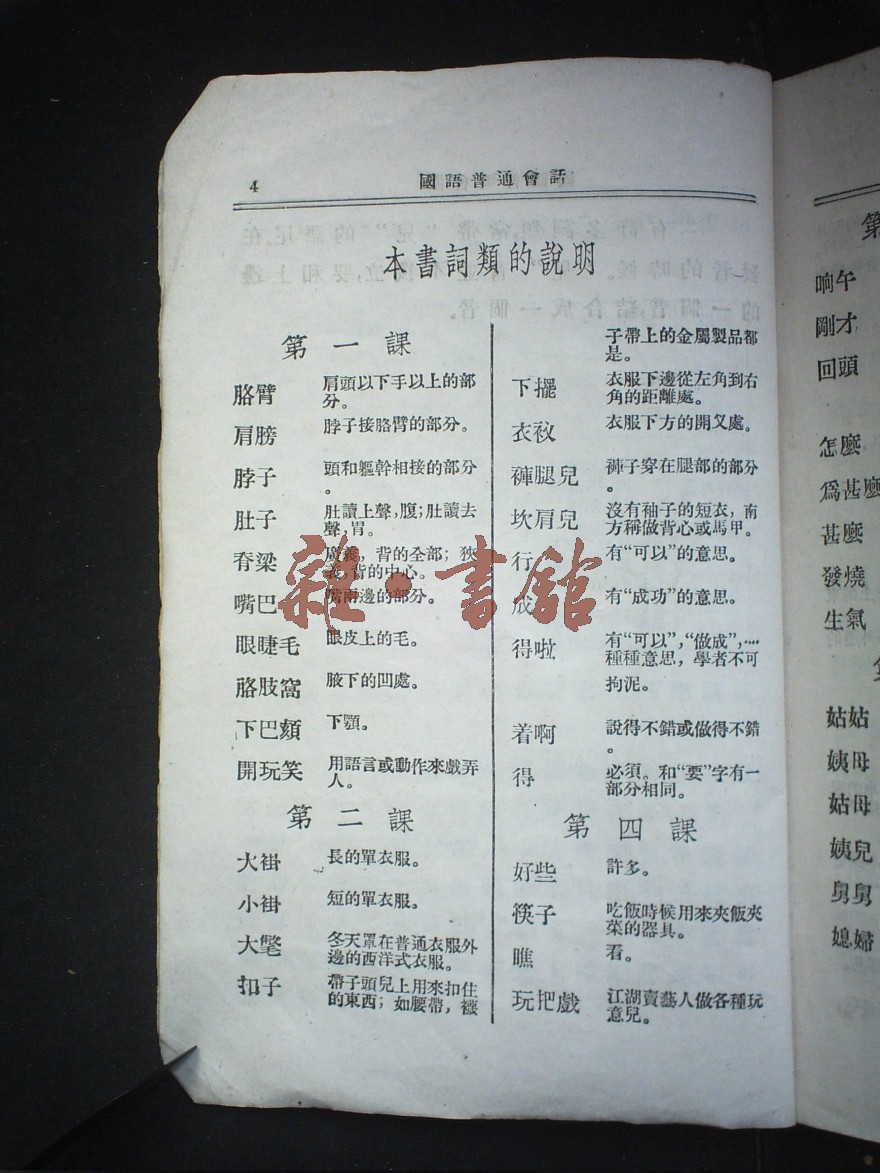 4
國語普通會話
本書詞類的說明
第一課
胳臂 肩頭以下手以上的部
分。
肩膀 脖子接胳臂的部分。
脖子 頭和軀幹相接的部分
。
肚子 肚讀上聲,腹;肚讀去
聲,胃。
脊梁 廣義,背的全部;狹
義,背的中心。
嘴巴 嘴兩邊的部分。
眼睫毛 眼皮上的毛。
胳肢窩 腋下的凹處。
下巴頦 下顎。
開玩笑 用語言或動作來戲弄
人。
第二課
大褂 長的單衣服。
小褂 短的單衣服。
大氅 冬天罩在普通衣服外
邊的西洋式衣服。
扣子 帶子頭兒上用來扣住
的東西;如腰帶,襪
子帶上的金屬製品都
是。
下擺 衣服下邊從左角到右
角的距離處。
衣衩 衣服下方的開叉處。
褲腿兒 褲子穿在腿部的部分
。
坎肩兒 沒有袖子的短衣,南
方稱做背心或馬甲。
行 有“可以”的意思。
成 有“成功”的意思。
得啦 有“可以”,“做成”,…
種種意思,學者不可
拘泥。
着啊 說得不錯或做得不錯
。
得 必須。和“要”字有一
部分相同。
第四課
好些 許多。
筷子 吃飯時候用來夾飯夾
菜的器具。
瞧 看。
玩把戲 江湖賣藝人做各種玩
意兒。
雜·書館
第
晌午
剛才
回頭
怎麼
爲甚麼
甚麼
發燒
生氣
姑姑
姨母
姑母
姨兒
舅舅
媳婦